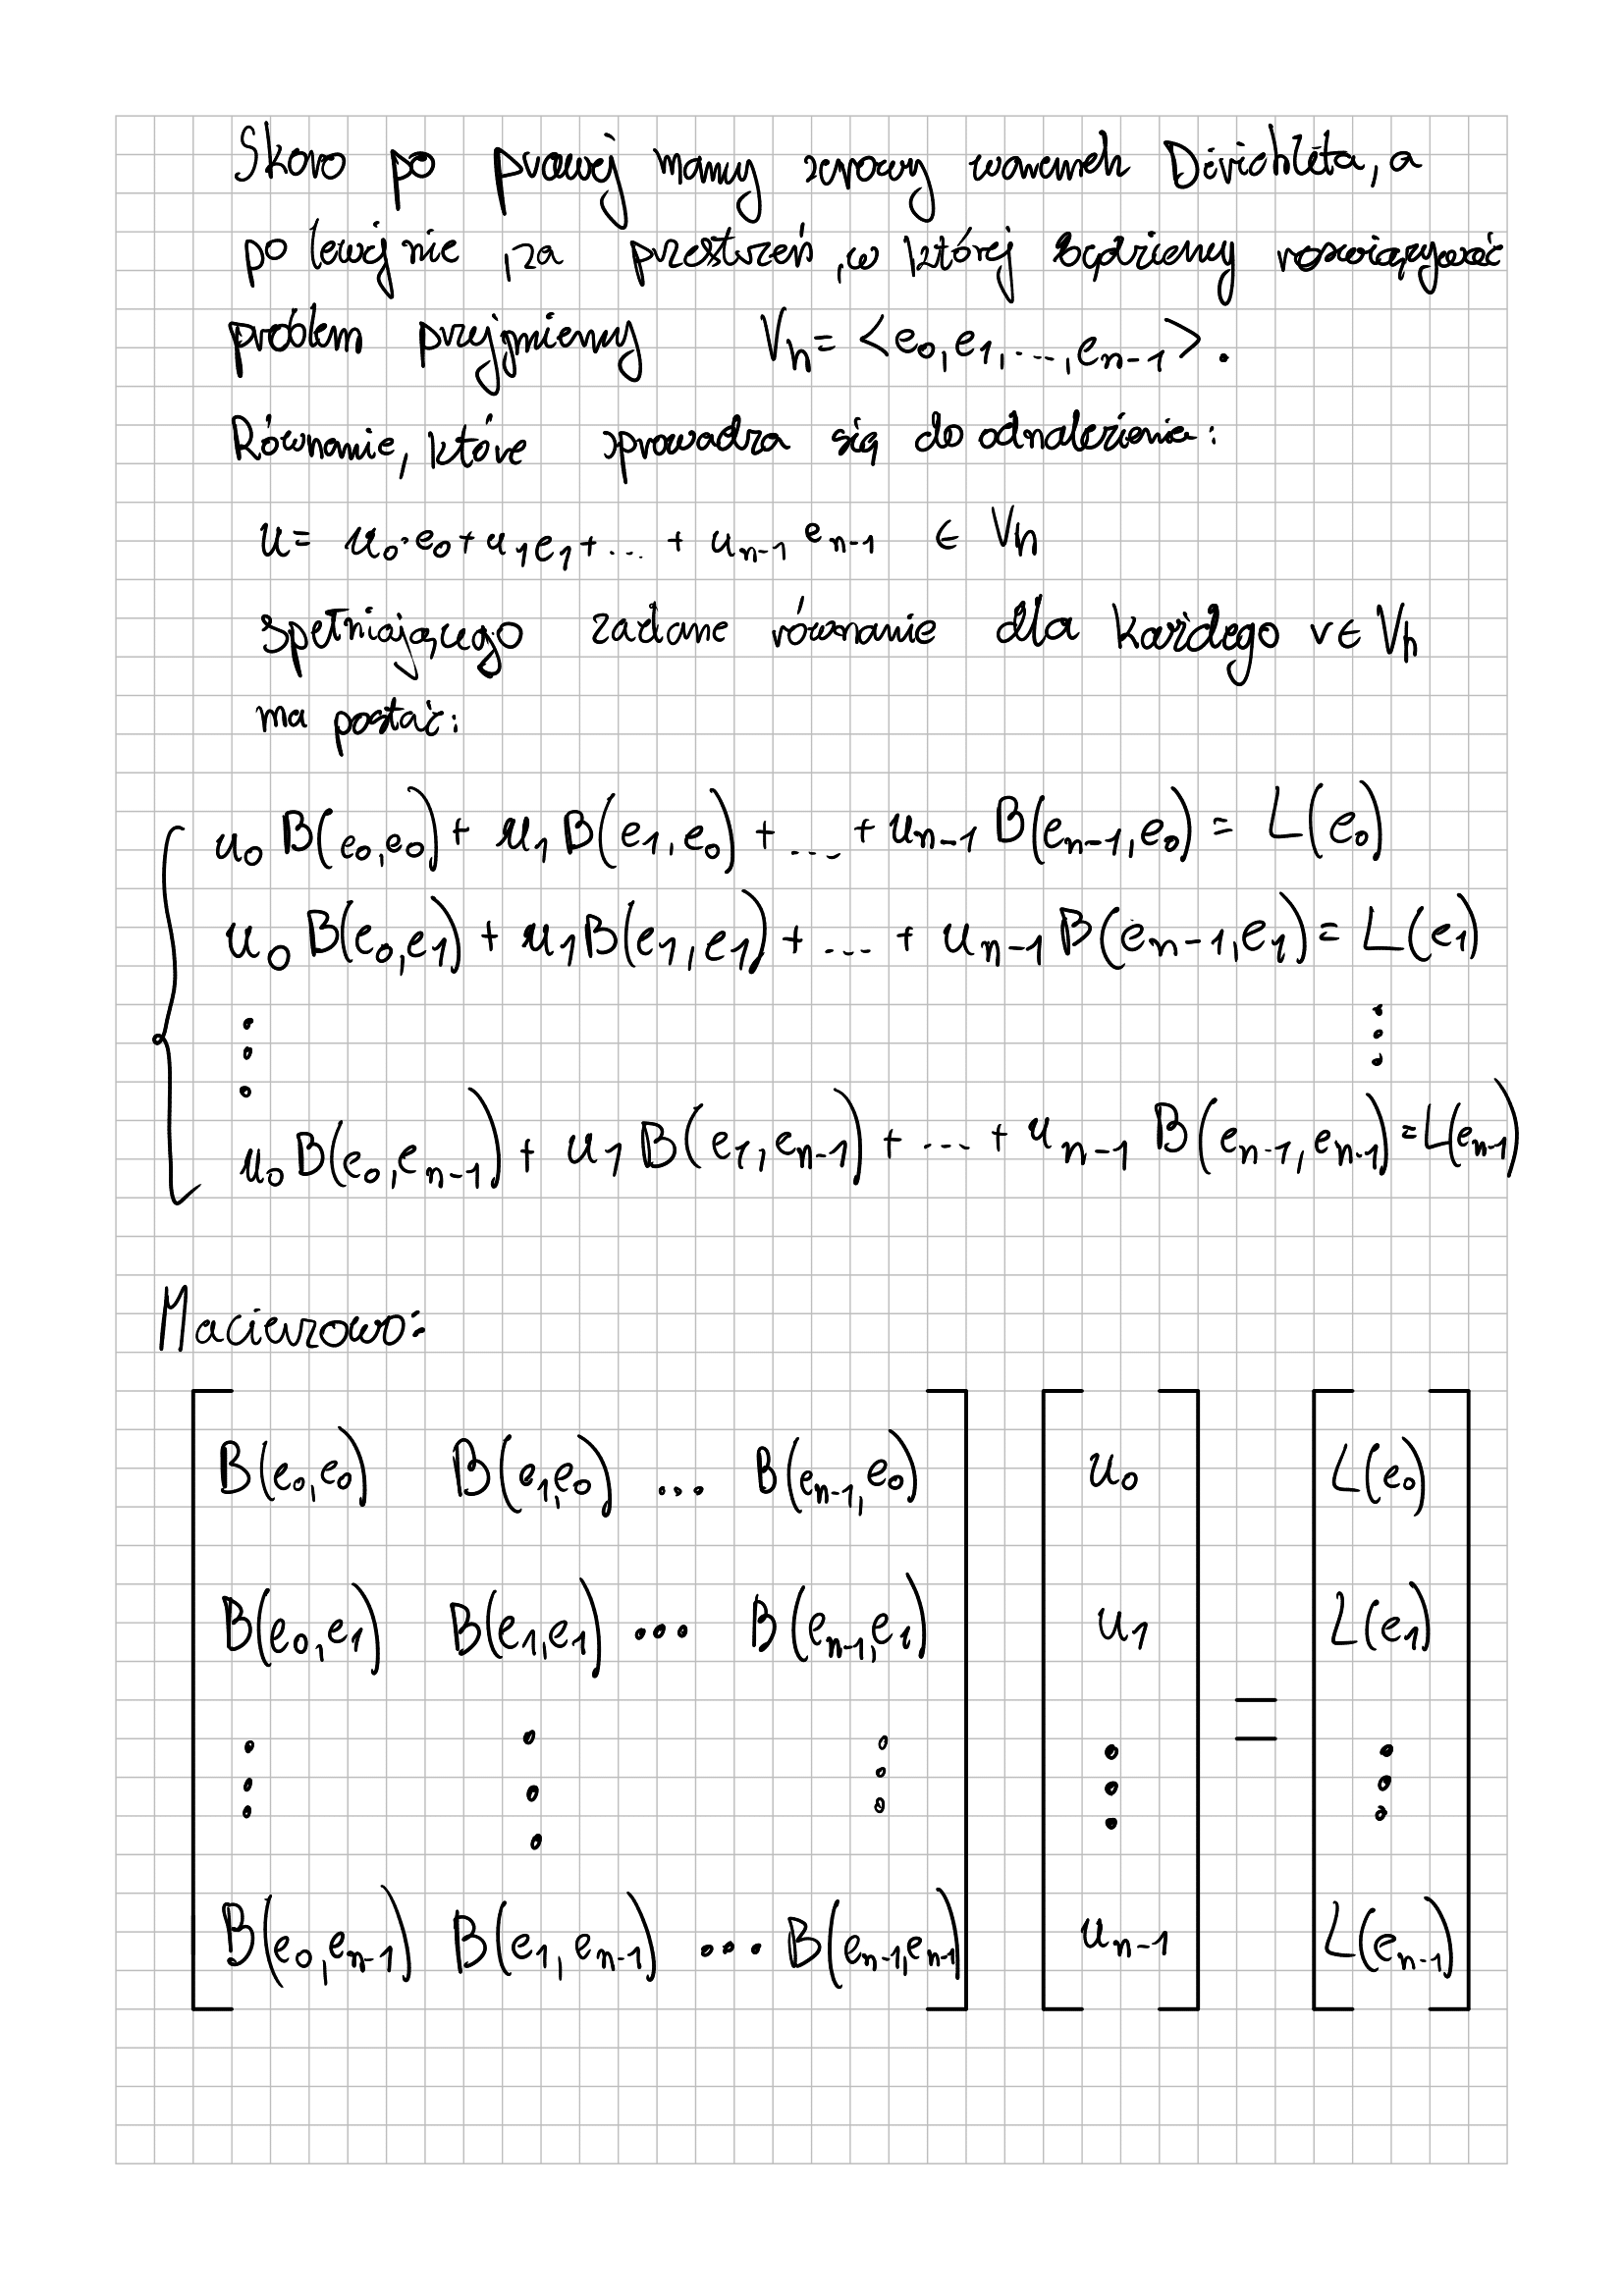 Skoro po prawej mamy zerowy warunek Dirichleta, a
po lewej nie, za przestrzeń, w której będziemy rozwiązywać
problem przyjmiemy V_h = <e_0, e_1, ..., e_{n-1}>.
Równanie, które sprowadza się do odnalezienia:
u = u_0·e_0 + u_1 e_1 + ... + u_{n-1} e_{n-1} ∈ V_h
spełniającego zadane równanie dla każdego v ∈ V_h
ma postać:
u_0 B(e_0,e_0) + u_1 B(e_1,e_0) + ... + u_{n-1} B(e_{n-1},e_0) = L(e_0)
u_0 B(e_0,e_1) + u_1 B(e_1,e_1) + ... + u_{n-1} B(e_{n-1},e_1) = L(e_1)
⋮ ⋮
u_0 B(e_0,e_{n-1}) + u_1 B(e_1,e_{n-1}) + ... + u_{n-1} B(e_{n-1},e_{n-1}) = L(e_{n-1})
Macierzowo:
B(e_0,e_0) B(e_1,e_0) ... B(e_{n-1},e_0) u_0 L(e_0)
B(e_0,e_1) B(e_1,e_1) ... B(e_{n-1},e_1) u_1 L(e_1)
⋮ ⋮ ⋮ ⋮ = ⋮
B(e_0,e_{n-1}) B(e_1,e_{n-1}) ... B(e_{n-1},e_{n-1}) u_{n-1} L(e_{n-1})